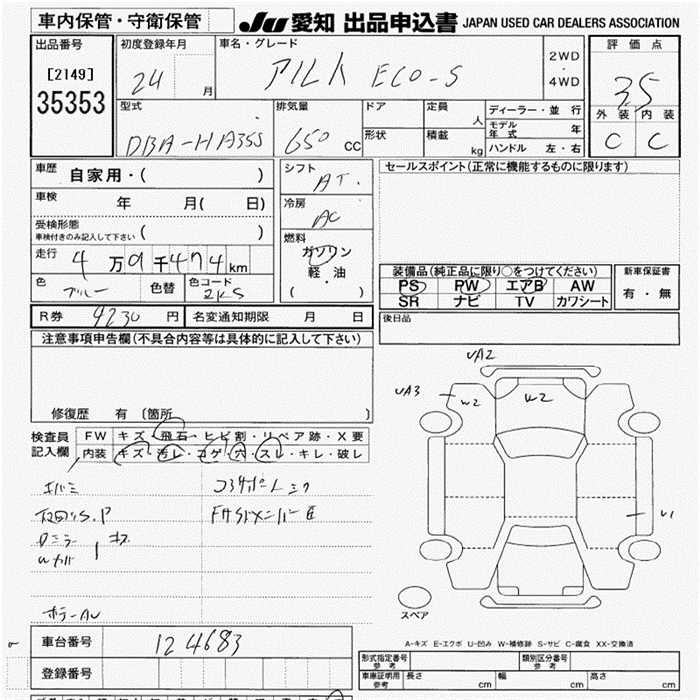 車内保管・守衛保管
JU 愛知 出品申込書 JAPAN USED CAR DEALERS ASSOCIATION
出品番号
[2149]
35353
初度登録年月
24 月
車名・グレード
アルト ECO-S
2WD
・
4WD
評価点
3.5
外装 内装
C C
型式
DBA-HA35S
排気量
650 CC
ドア
形状
定員 人
積載 kg
ディーラー・並行
モデル年式 年
ハンドル 左・右
車歴 自家用・( )
車検 年 月( 日)
受検形態
車検付きのみ記入して下さい ( )
走行 4万9千474km
色 ブルー 色替 色コード ZKS
シフト
AT.
冷房
AC
燃料
ガソリン
軽・油
( )
セールスポイント(正常に機能するものに限ります)
装備品(純正品に限り○をつけてください)
PS PW エアB AW
SR ナビ TV カワシート
新車保証書
有・無
R券 9230 円 名変通知期限 月 日
後日品
注意事項申告欄(不具合内容等は具体的に記入して下さい)
修復歴 有 〔箇所 〕
検査員
記入欄
FW キズ・飛石・ヒビ割・リペア跡・X要
内装 キズ・汚レ・コゲ・穴・スレ・キレ・破レ
UA2
UA3
W2
U2
U1
スペア
A-キズ E-エクボ U-凹み W-補修跡 S-サビ C-腐食 XX-交換済
車台番号 124683
登録番号
形式指定番号
参考
類別区分番号
参考
車庫証明用
参考
長さ cm 幅 cm 高さ cm